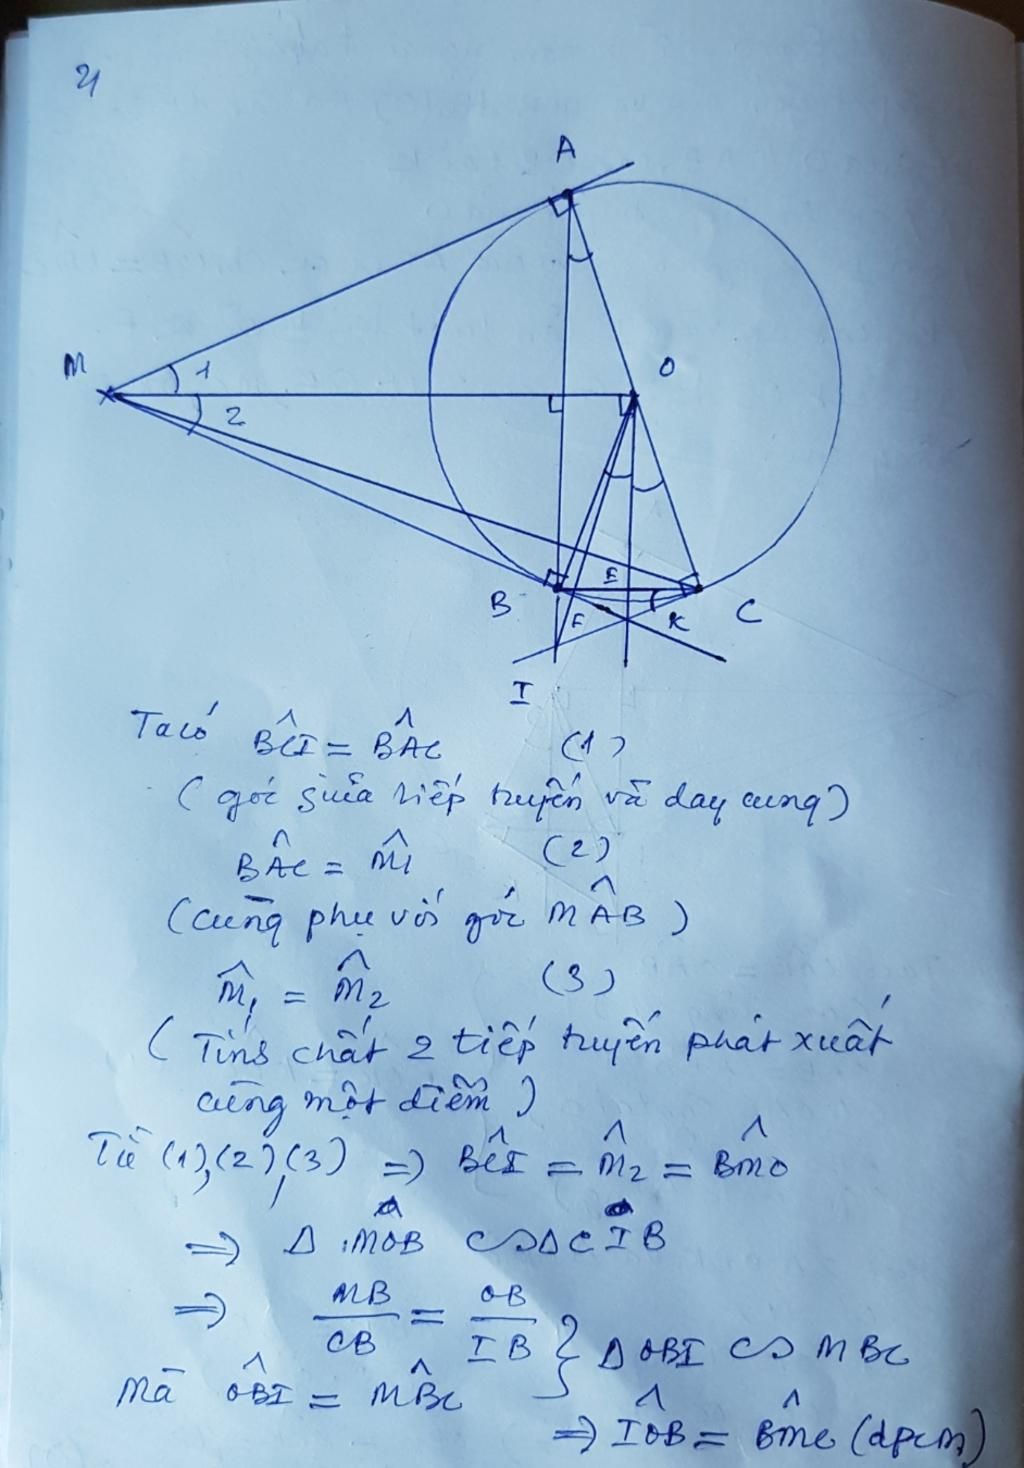 4
A
M
1
O
2
E
B
F
K
C
I
Ta có BĈI = BÂC (1)
(góc giữa tiếp tuyến và day cung)
BÂC = M̂1 (2)
(cùng phụ với góc MÂB)
M̂1 = M̂2 (3)
(Tính chất 2 tiếp tuyến phát xuất
cùng một điểm)
Từ (1),(2),(3) => BĈI = M̂2 = BM̂O
=> Δ MÔB ∽ Δ CÎB
=> MB/CB = OB/IB } Δ OBI ∽ MBC
Mà OB̂I = MB̂C
=> IÔB = BM̂C (đpcm)